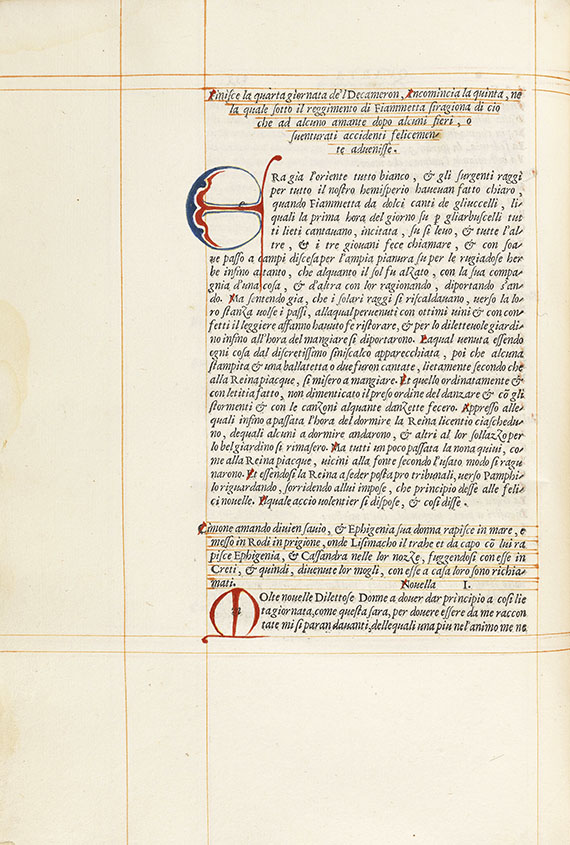 Finisce la quarta giornata de'l Decameron, Incomincia la quinta, ne
la quale sotto il reggimento di Fiammetta si ragiona di cio
che ad alcuno amante dopo alcuni fieri, o
suenturati accidenti felicemen-
te aduenisse.
ERa gia l'oriente tutto bianco, & gli surgenti raggi
per tutto il nostro hemisperio haueuan fatto chiaro,
quando Fiammetta da dolci canti de gliuccelli, li-
quali la prima hora del giorno su p gliarbuscelli tut
ti lieti cantauano, incitata, su si leuo, & tutte l'al
tre, & i tre giouani fece chiamare, & con soa-
ue passo a campi discesa per l'ampia pianura su per le rugiadose her
be infino attanto, che alquanto il sol fu alzato, con la sua compa-
gnia d'una cosa, & d'altra con lor ragionando, diportando s'an-
do. Ma sentendo gia, che i solari raggi si riscaldauano, uerso la lo-
ro stanza uolse i passi, allaqual peruenuti con ottimi uini & con con-
fetti il leggiere affanno hauuto fe ristorare, & per lo dilettevole giardi-
no infino all'hora del mangiare si diportarono. Laqual uenuta essendo
ogni cosa dal discretissimo siniscalco apparecchiata, poi che alcuna
stampita & una ballatetta o due furon cantate, lietamente secondo che
alla Reina piacque, si misero a mangiare. Et quello ordinatamente &
con letitia fatto, non dimenticato il preso ordine del danzare & cō gli
stormenti & con le canzoni alquante danzette fecero. Appresso alle
quali infino a passata l'hora del dormire la Reina licentio ciaschedu-
no, dequali alcuni a dormire andarono, & altri al lor sollazzo per
lo bel giardino si rimasero. Ma tutti un poco passata la nona quiui, co-
me alla Reina piacque, uicini alla fonte secondo l'usato modo si ragu
narono. Et essendosi la Reina a seder posta pro tribunali, uerso Pamphi-
lo riguardando, sorridendo allui impose, che principio desse alle feli-
ci nouelle. Ilquale accio uolentier si dispose, & cosi disse.
Cimone amando diuien sauio, & Ephigenia sua donna rapisce in mare, e
messo in Rodi in prigione, onde Lisimacho il trahe et da capo cō lui ra
pisce Ephigenia, & Cassandra nelle lor nozze, fuggendosi con esse in
Creti, & quindi, diuenute lor mogli, con esse a casa loro sono richia-
mati. Nouella I.
MOlte nouelle Dilettose Donne a douer dar principio a cosi lie
ta giornata, come questa sara, per douere essere da me raccon
tate mi si paran dauanti, dellequali una piu nel'animo me ne